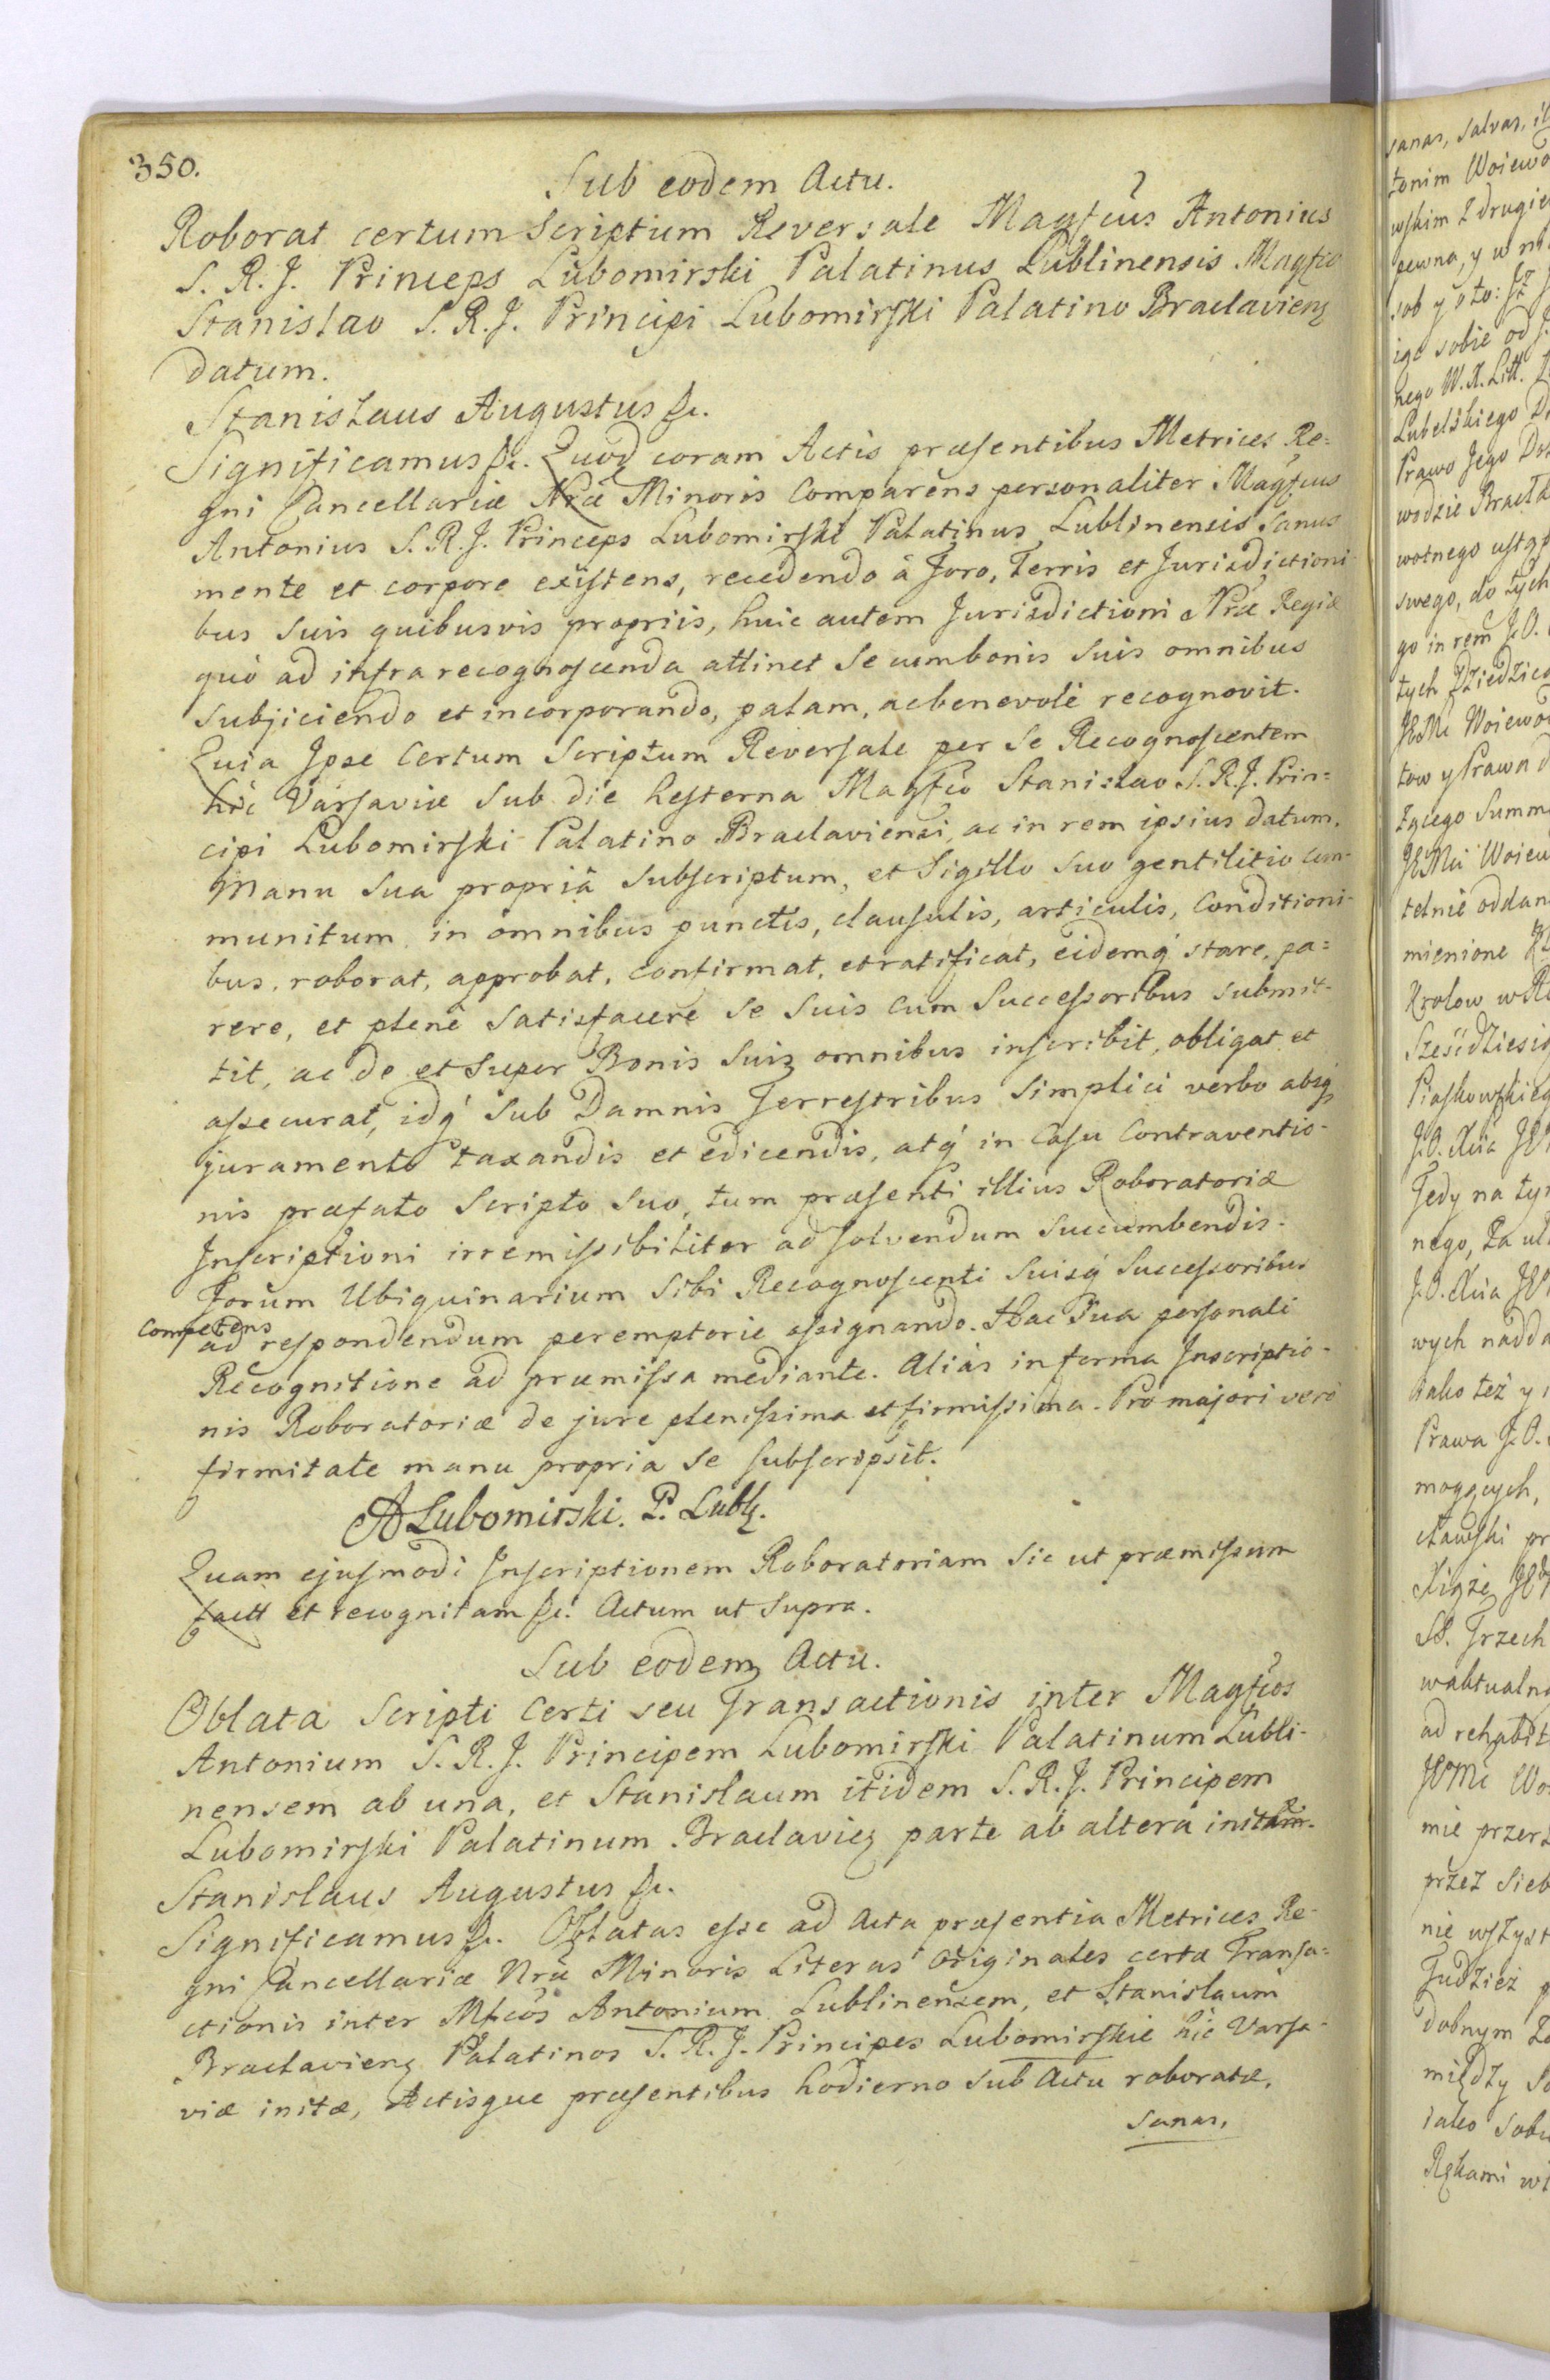 350.
Sub eodem Actu.
Roborat certum Scriptum Reversale Magfcus Antonius
S. R. J. Princeps Lubomirski Palatinus Lublinensis Magfco
Stanislao S. R. J. Principi Lubomirski Palatino Braclaviens
datum.
Stanislaus Augustus &c.
Significamus &c. Quod coram Actis præsentibus Metrices Re=
gni Cancellariæ Nræ Minoris Comparens personaliter Magfcus
Antonius S. R. J. Princeps Lubomirski Palatinus Lublinensis Sanus
mente et corpore existens, recedendo à Foro, Terris et Jurisdictioni-
bus suis quibusvis propriis, huic autem Jurisdictioni Nræ Regiæ
quò ad infra recognoscenda attinet Se cum bonis suis omnibus
subjiciendo et incorporando, palam, ac benevolè recognovit.
Quia Ipse Certum Scriptum Reversale per Se Recognoscentem
hic Varsaviæ Sub die hesterna Magfco Stanislao S. R. J. Prin=
cipi Lubomirski Palatino Braclaviensi, ac in rem ipsius datum,
Manu sua propriâ subscriptum, et Sigillo suo gentilitio com-
munitum in omnibus punctis, clausulis, articulis, Conditioni-
bus, roborat, approbat, confirmat, et ratificat, eidemq́ stare, pa=
rere, et plenè Satisfacere Se Suis cum Successoribus submit-
tit, ac de et super Bonis Suis omnibus inscribit, obligat et
assecurat, idq́ sub Damnis Terrestribus simplici verbo absq́
juramento taxandis et edicendis, atq́ in Casu Contraventio-
nis præfato Scripto suo, tum præsenti illius Roboratoriæ
Inscriptioni irremissibiliter ad solvendum succumbendis.
Forum Ubiquinarium Sibi Recognoscenti Suisq́ Successoribus
Competens
ad respondendum peremptorie assignando. Hac Sua personali
Recognitione ad præmissa mediante. Aliàs in forma Inscriptio-
nis Roboratoriæ de jure plenissima et firmissima. Pro majori verò
firmitate manu propria Se subscripsit.
A Lubomirski. P. Lubl.
Quam ejusmodi Inscriptionem Roboratoriam Sic ut præmissum
factt et recognitam &c. Actum ut Supra.
Sub eodem Actu.
Oblata Scripti Certi seu Transactionis inter Magfcos
Antonium S. R. J. Principem Lubomirski Palatinum Lubli-
nensem ab una, et Stanislaum itidem S. R. J. Principem
Lubomirski Palatinum Braclavien parte ab altera
Stanislaus Augustus &c.
Significamus &c. Oblatas esse ad Acta præsentia Metrices Re-
gni Cancellariæ Nræ Minoris Literas Originales certæ Transa=
ctionis inter Mfcos Antonium Lublinensem, et Stanislaum
Braclaviens Palatinos S. R. J. Principes Lubomirskie hic Varsa-
viæ initæ, Actisque præsentibus hodierno sub Actu roboratæ,
sanas,
sanas, salvas,
Woiewo
wskim z drugie
pewna, y w
sob y oto: Iż
sobie od
nego W. X. Litt.
Lubelskiego
Prawo Jego
wodzie Bracła
wotnego ustąp
swego, do tych
go in rem J. O.
tych Dziedzic
JEMci Woiewo
tow y Prawa
Summ
JEMci Woiew
telnie oddan
mienione
Krolow w
Sześćdziesią
Piaskowskieg
J. O. Xcia
Tedy na ty
nego, za
J. O. Xcia
wych nadda
iako też y
Prawa J. O.
mogących,
cławski pr
Xiążę
Trzech
waktualn
ad rehabit
JEMci Wo
mie przer
przez Sieb
nie wszyst
Tudzież p
dobnym
między So
iako Sob
Rękami w